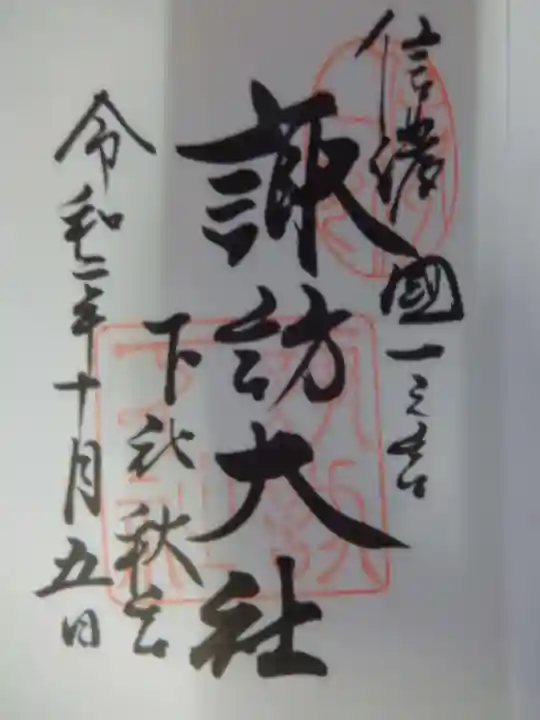 信濃國一之宮
諏訪大社
下社秋宮
令和二年十月五日